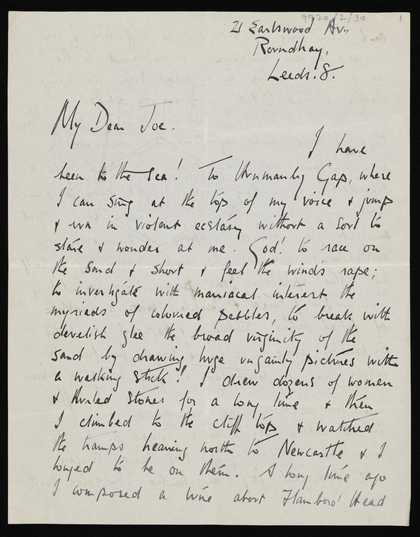 9920/2/30
1
21 Earlswood Av,
Roundhay,
Leeds. 8.
My Dear Joe.
I have
been to the sea! To Hunmanby Gap, where
I can sing at the top of my voice & jump
& run in violent ecstasy without a soul to
stare & wonder at me. God! to race on
the sand & shout & feel the winds rape;
to investigate with maniacal interest the
myriads of coloured pebbles, to break with
develish glee the broad virginity of the
sand by drawing huge ungainly pictures with
a walking stick! I drew dozens of women
& hurled stones for a long time & then
I climbed to the cliff top & watched
the tramps hearing north to Newcastle & I
longed to be on them. A long time ago
I composed a line about Flamboro' Head